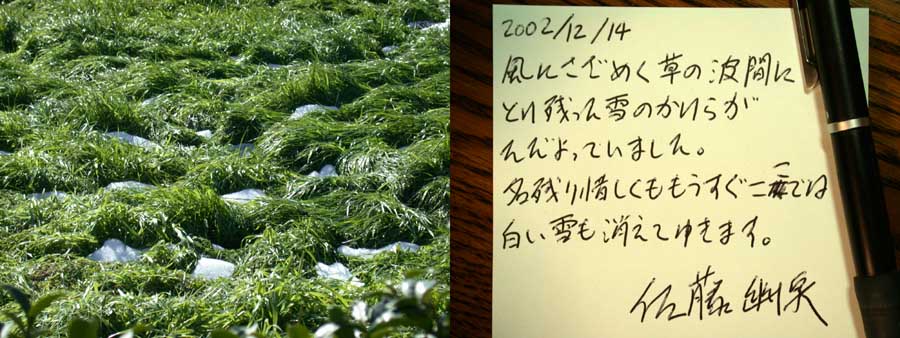 2002/12/14
風にさざめく草の波間に
とり残った雪のかけらが
ただよっていました。
名残り惜しくももうすぐ では
白い雪も消えてゆきます。
佐藤